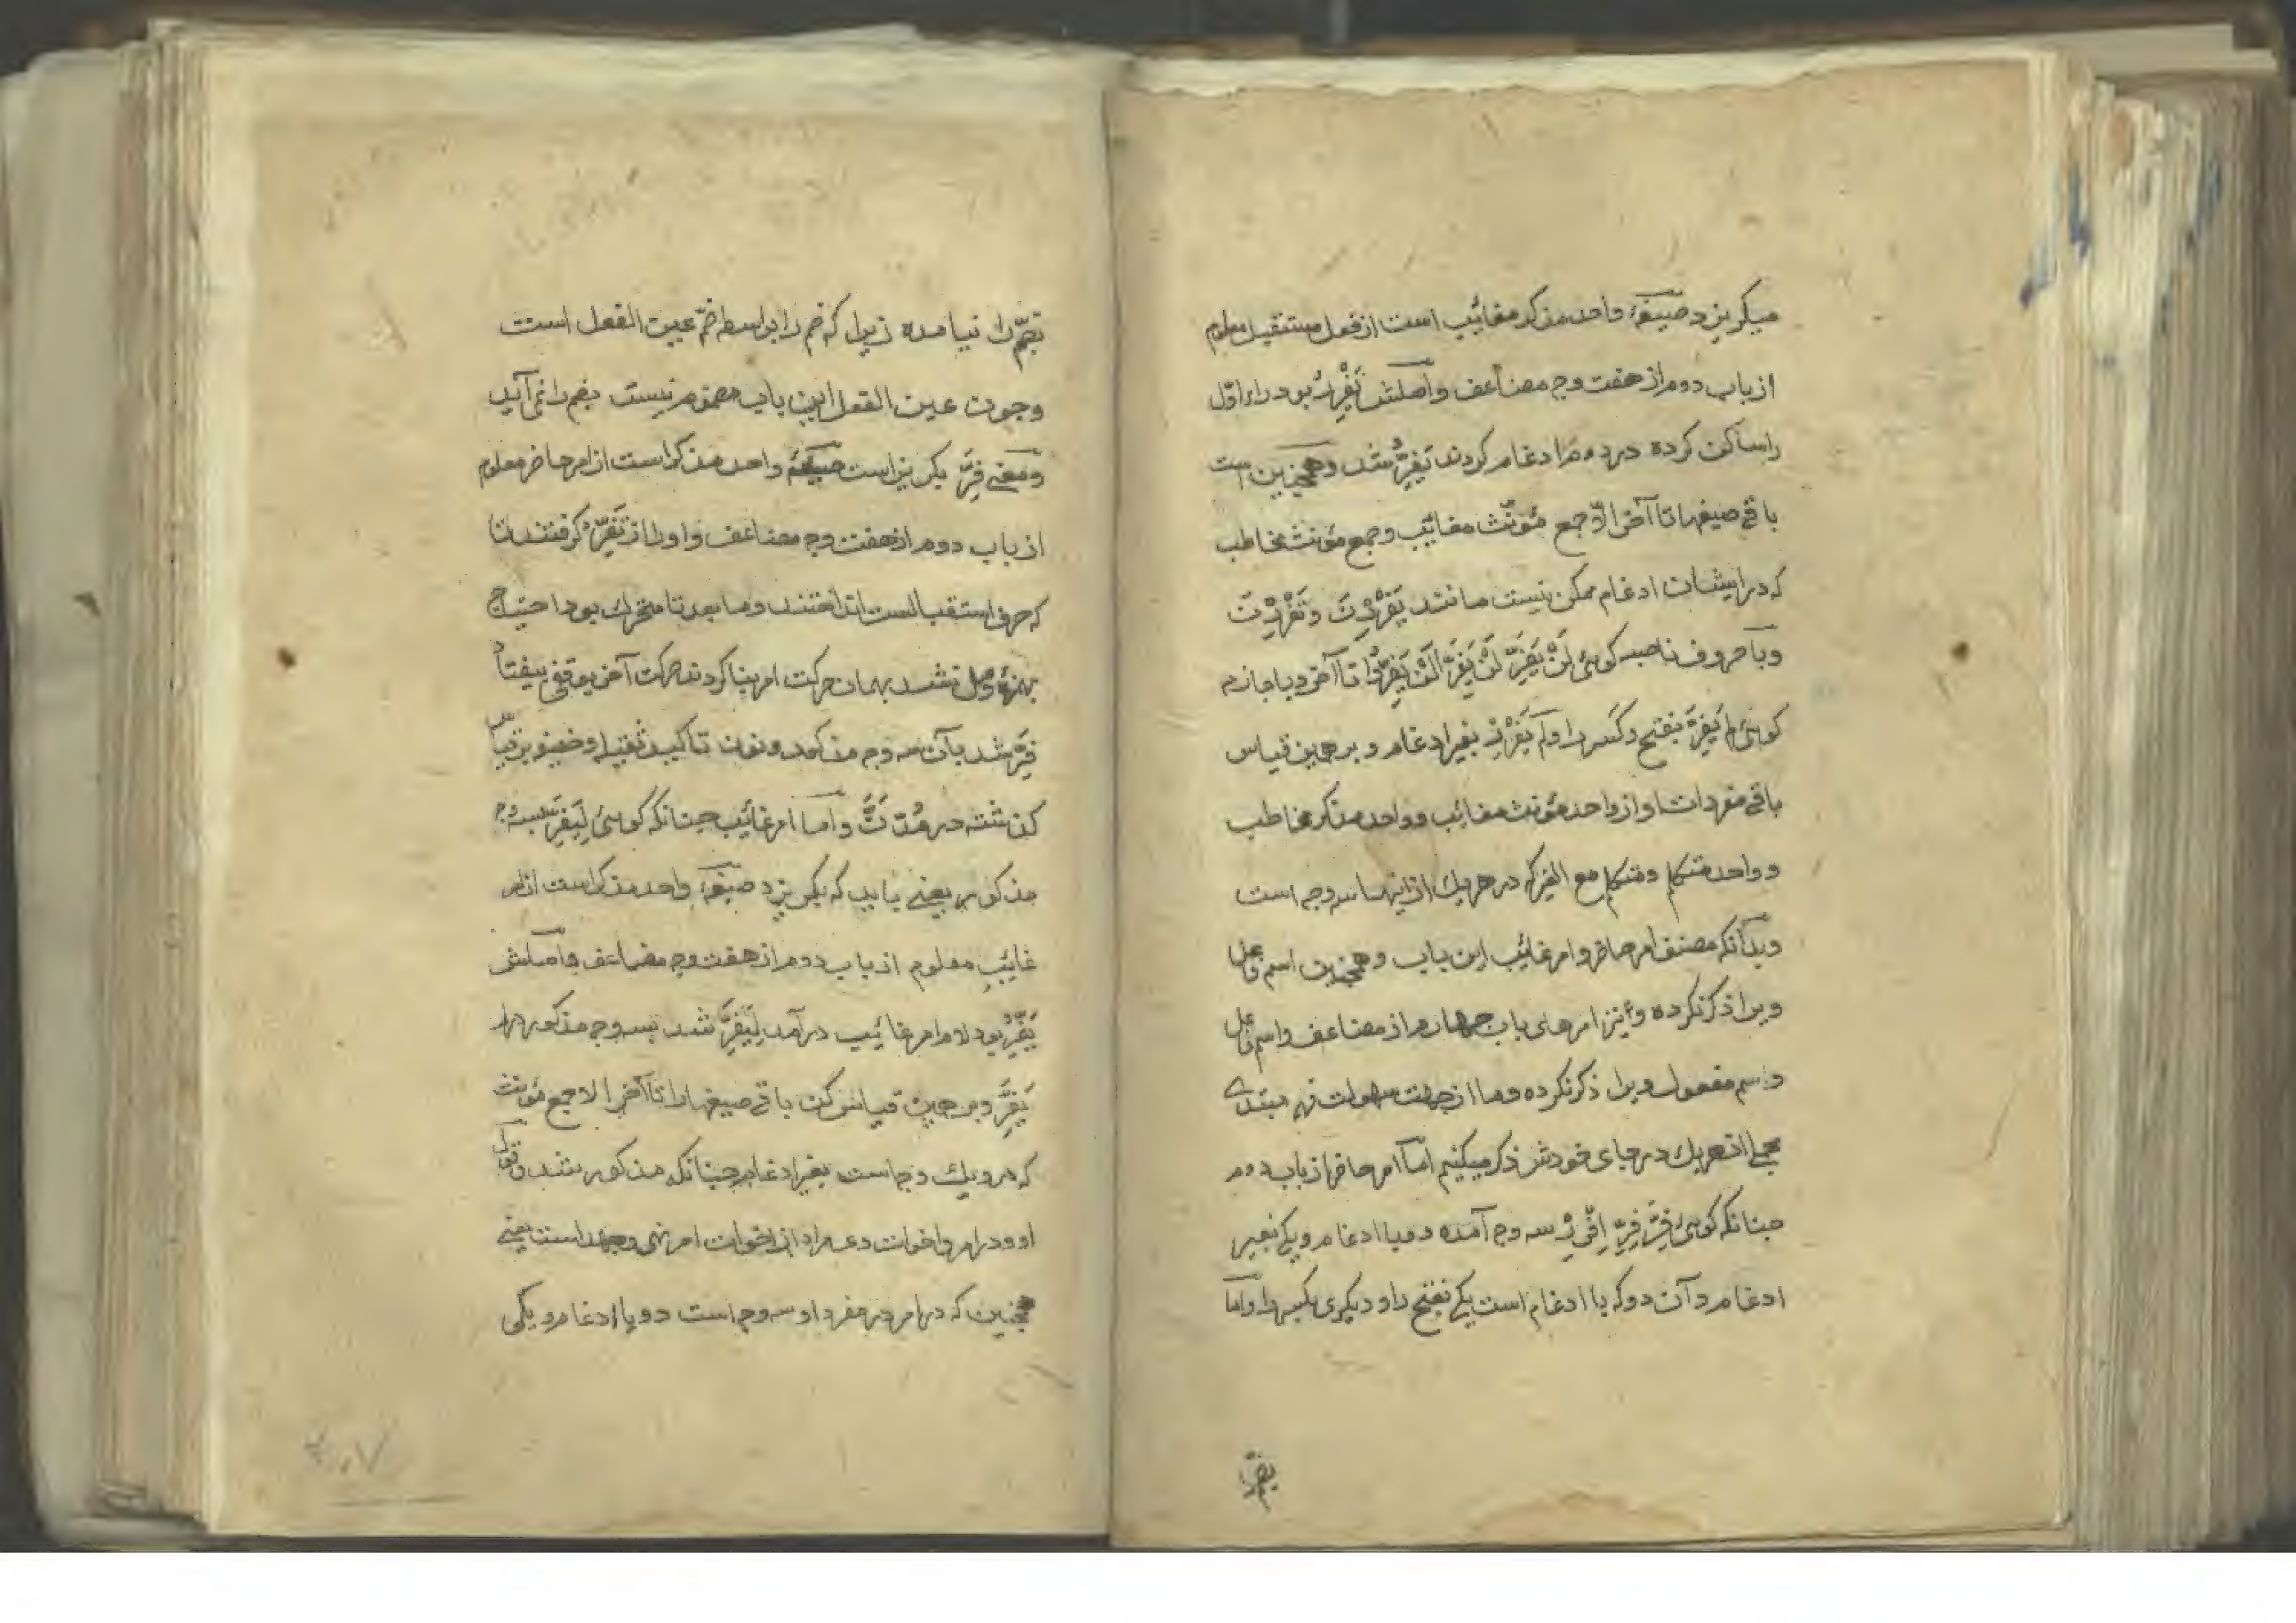 میکریزد صیغهٔ واحد مذکر مغائب است از فعل مستقبل معلوم
از باب دوم از هفت وجه مضاعف و اصلش یَفْرِرُ بود راء اوّل
را ساکن کرده در دوم را ادغام کردند یَفِرُّ شد و همچنین است
باقی صیغها تا آخر الّا جمع مؤنّث مغائب و جمع مؤنث مخاطب
که در ایشان ادغام ممکن نیست مانند یَفْرِرْنَ و تَفْرِرْنَ
و با حروف ناصبه کوئی لَنْ یَفِرَّ لَنْ یَفِرَّا لَنْ یَفِرُّوا تا آخر و با جازم
کوئی لم یَفِرَّ بفتح و کسر را و لَم یَفْرِرْ بغیر ادغام و بر همین قیاس
باقی مفردات او از واحد مؤنث مغائب و واحد مذکر مخاطب
و واحد متکلم و متکلم مع الغیر که در هر یك از اینها سه وجه است
و بدانکه مصنف امر حاضر و امر غائب این باب و همچنین اسم فاعل
ویرا ذکر نکرده و نیز امرهای باب چهارم از مضاعف و اسم فاعل
و اسم مفعول ویرا ذکر نکرده و ما از جهت سهولت فهم مبتدی
مجملا از هر یك در جای خودش ذکر میکنیم امّا امر حاضر از باب دوم
چنانکه کوئی فِرَّ فِرِّ اِفْرِرْ سه وجه آمده دو با ادغام و یکی بغیر
ادغام و آن دو که با ادغام است یکی بفتح را و دیکری بکسر را و امّا
بضمّ را
بضمّ را نیامده زیرا که ضم را بواسطه ضمّ عین الفعل است
و چون عین الفعل این باب مضموم نیست بضم را نمی آید
و معنی فِرَّ بکریز است صیغهٔ واحد مذکر است از امر حاضر معلوم
از باب دوم از هفت وجه مضاعف و او را از تَفِرُّ کرفتند تا
که حرف استقبالست انداختند و ما بعد تا متحرك بود احتیاج
بهمزهٔ وصل نشد بهمان حرکت امر بنا کردند حرکت آخر بوقفی بیفتاد
فِرَّ شد بآن سه وجه مذکور و نون تاکید ثقیله و خفیفه
کذشته در مُدَّنَّ و اما امر غائب چنانکه کوئی لِیَفِرَّ بسه وجه
مذکور یعنی باید که بکریزد صیغهٔ واحد مذکر است از امر
غائب معلوم از باب دوم از هفت وجه مضاعف و اصلش
یَفِرُّ بود لام امر غائب در آمد لِیَفِرَّ شد بسه وجه مذکور
یَفِرَّ و بر همین قیاس کن باقی صیغها را تا آخر الا جمع مؤنث
که در و یك وجه است بغیر ادغام چنانکه مذکور شد و قول
او و در امر و اخوات و مراد از اخوات امر نهی و جحد است یعنی
همچنین که در امر در مفرد او سه وجه است دو با ادغام و یکی